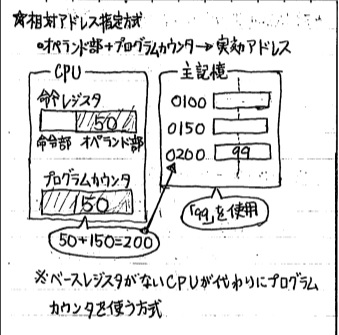 ☆相対アドレス指定方式
○オペランド部+プログラムカウンタ→実効アドレス
CPU
命令レジスタ
50
命令部 オペランド部
プログラムカウンタ
150
50+150=200
主記憶
0100
0150
0200 99
「99」を使用
※ベースレジスタがないCPUが代わりにプログラム
カウンタを使う方式